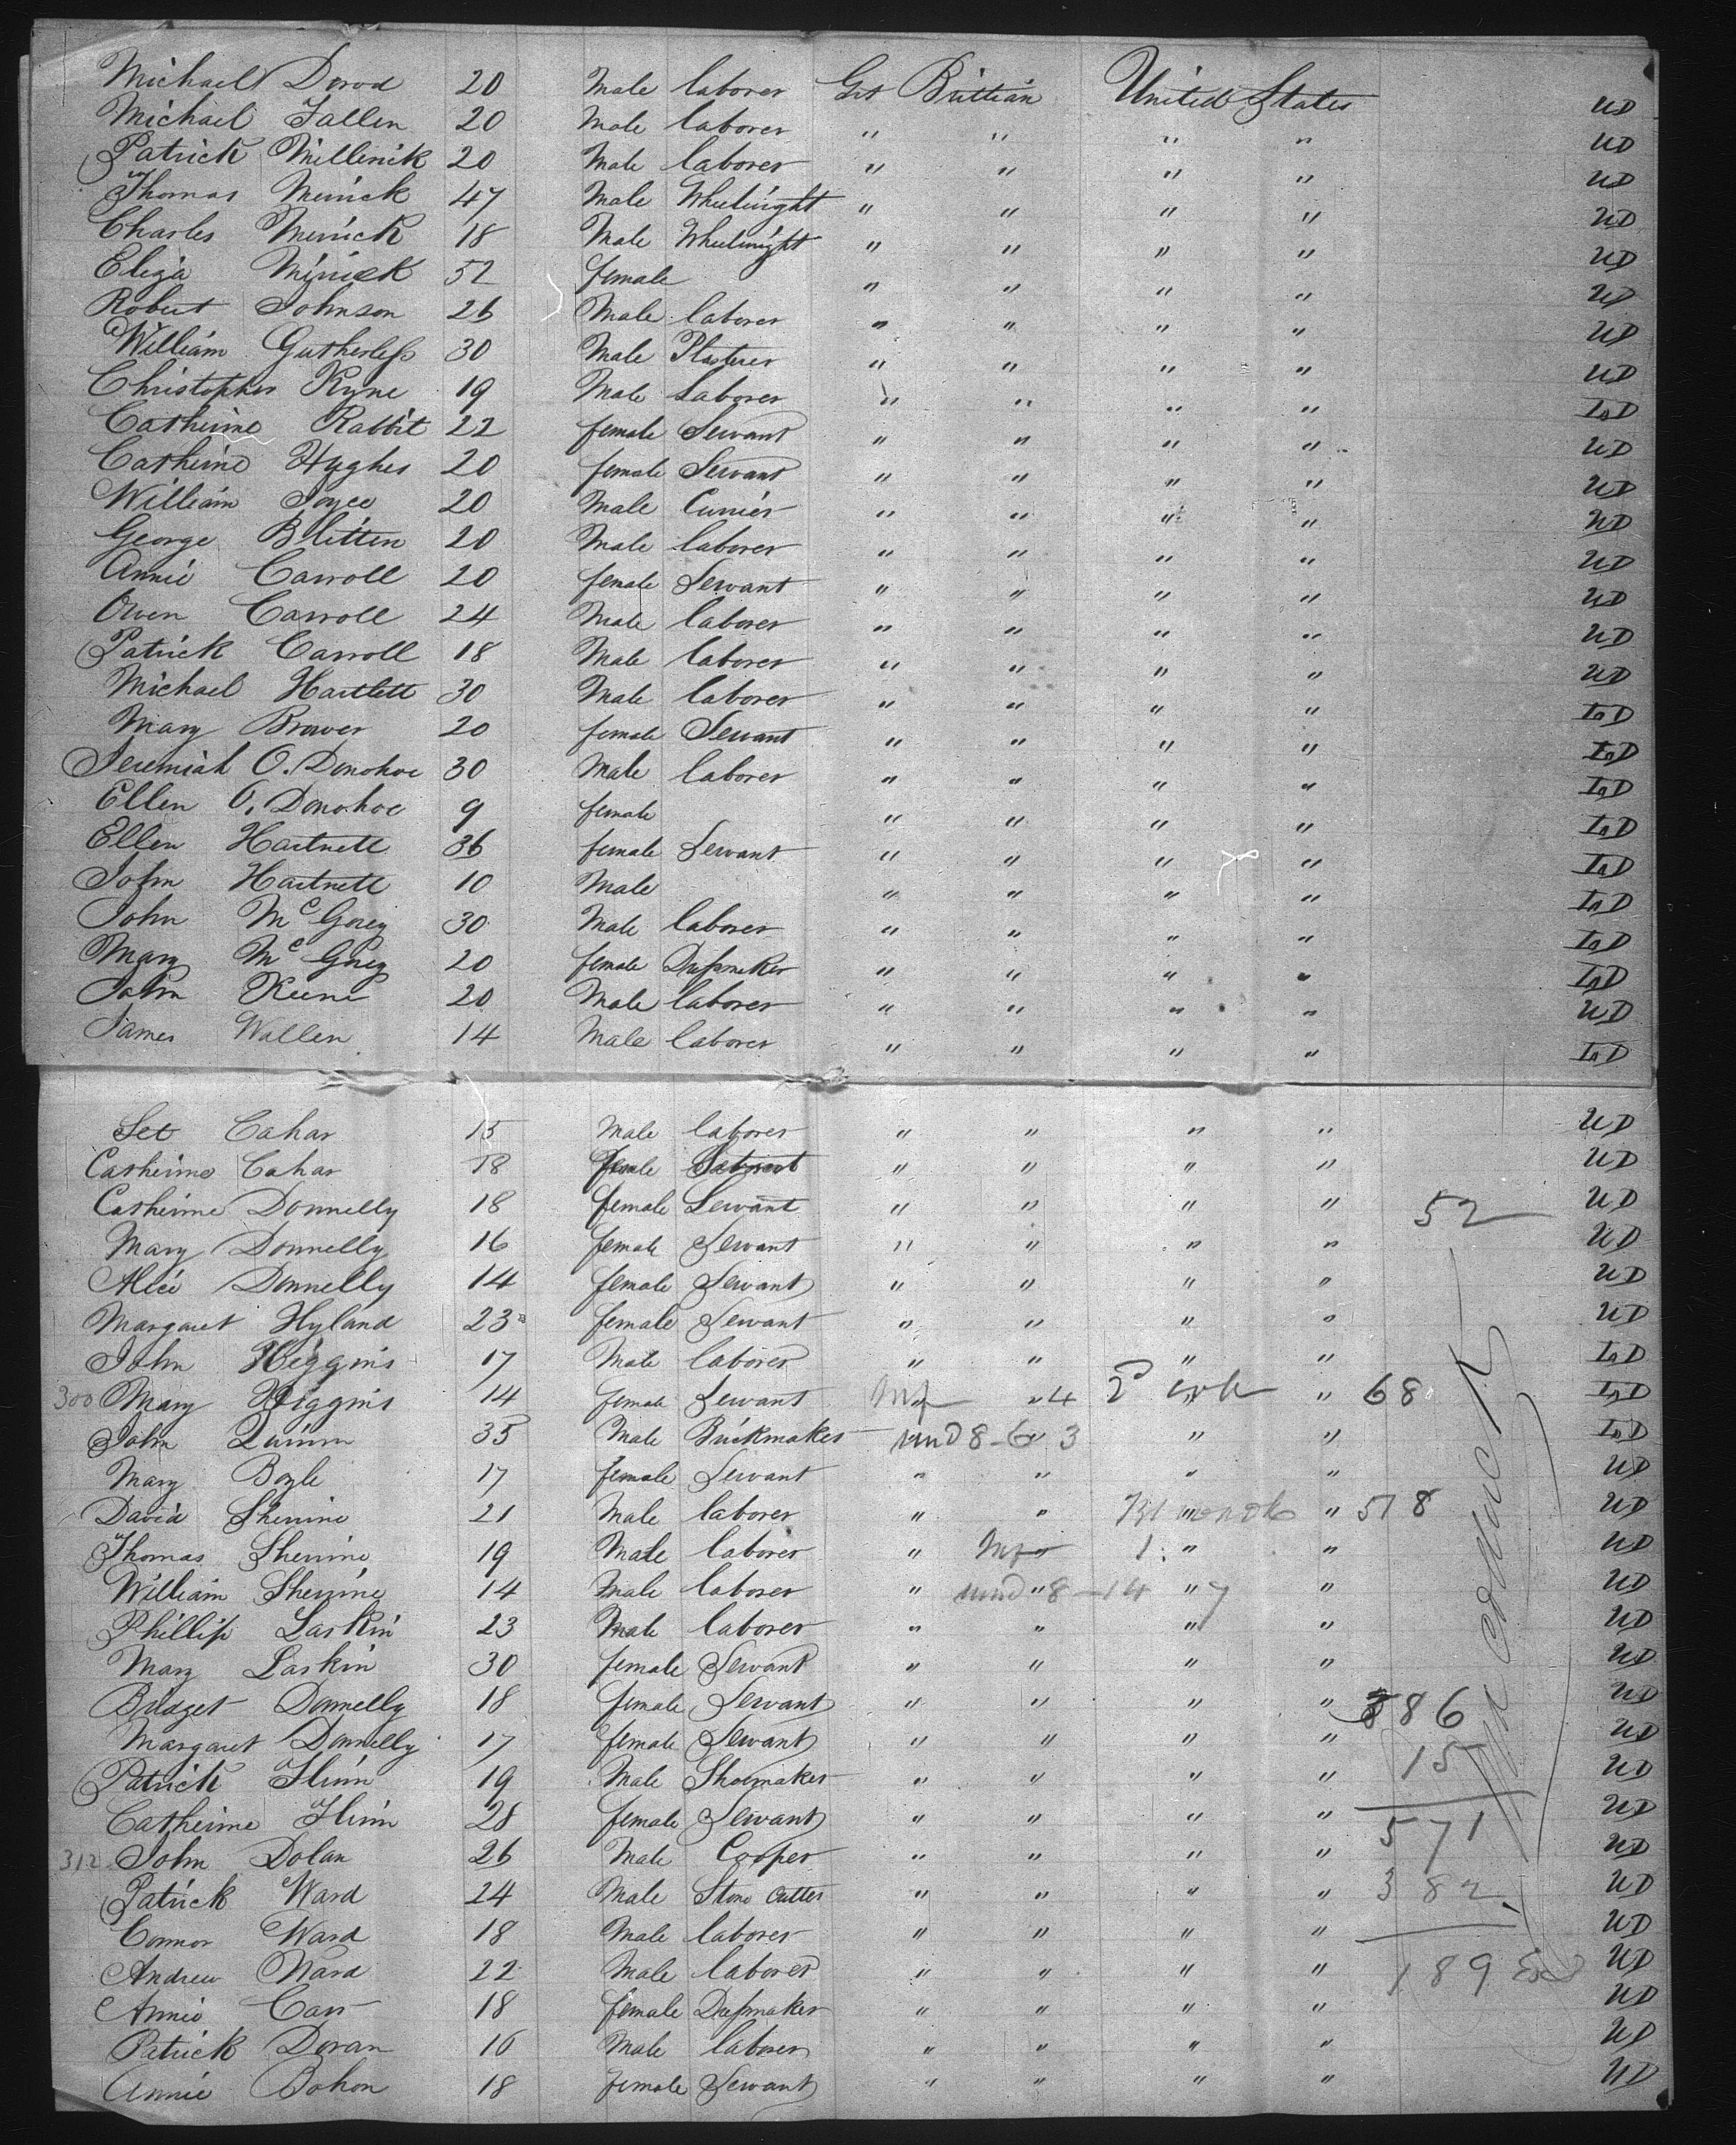 Michael Dorod 20 Male laborer Grt Brittian United States UD
Michael Fallen 20 Male laborer " " " " UD
Patrick Millerick 20 Male laborer " " " " UD
Thomas Minick 47 Male Wheelright " " " " UD
Charles Minick 18 Male Wheelright " " " " UD
Eliza Minick 52 female " " " " UD
Robert Johnson 26 Male laborer " " " " UD
William Gutherless 30 Male Plasterer " " " " UD
Christopher Kyne 19 Male Laborer " " " " LD
Catherine Rabbit 22 female Servant " " " " UD
Catherine Hughes 20 female Servant " " " " UD
William Joyce 20 Male Currier " " " " UD
George Blitten 20 Male laborer " " " " UD
Annie Carroll 20 female Servant " " " " UD
Owen Carroll 24 Male laborer " " " " UD
Patrick Carroll 18 Male laborer " " " " UD
Michael Hartlett 30 Male laborer " " " " LD
Mary Brower 20 female Servant " " " " LD
Jeremiah O. Donohoe 30 Male laborer " " " " LD
Ellen O. Donohoe 9 female " " " " LD
Ellen Hartnett 36 female Servant " " " " LD
John Hartnett 10 Male " " " " LD
John McGorey 30 Male laborer " " " " LD
Mary McGorey 20 female Dressmaker " " " " LD
John Keene 20 Male laborer " " " " UD
James Wallen 14 Male laborer " " " " LD
Set Cahar 15 Male laborer " " " " UD
Catherine Cahar 18 female Servant " " " " UD
Catherine Donnelly 18 female Servant " " " " 52 UD
Mary Donnelly 16 female Servant " " " " UD
Alice Donnelly 14 female Servant " " " " UD
Margaret Hyland 23 female Servant " " " " UD
John Higgins 17 Male laborer " " " " LD
300 Mary Higgins 14 female Servant " " 4 2 " " 68 LD
John Quinn 35 Male Brickmaker und 8 - 6 " 3 " " LD
Mary Boyle 17 female Servant " " " " UD
David Sherrine 21 Male laborer " " " " 518 UD
Thomas Sherrine 19 Male laborer " 1 " " UD
William Sherrine 14 Male laborer " und " 8 - 14 " 7 " UD
Phillip Larkin 23 Male laborer " " " " UD
Mary Larkin 30 female Servant " " " " UD
Bridget Donnelly 18 female Servant " " " " 586 UD
Margaret Donnelly 17 female Servant " " " " 15 UD
Patrick Flinn 19 Male Shoemaker " " " " UD
Catherine Flinn 28 female Servant " " " " 571 UD
312 John Dolan 26 Male Cooper " " " " UD
Patrick Ward 24 Male Stone Cutter " " " " 382 UD
Connor Ward 18 Male laborer " " " " UD
Andrew Ward 22 Male laborer " " " " 189 UD
Annie Carr 18 female Dressmaker " " " " UD
Patrick Doran 16 Male laborer " " " " UD
Annie Bohon 18 female Servant " " " " UD